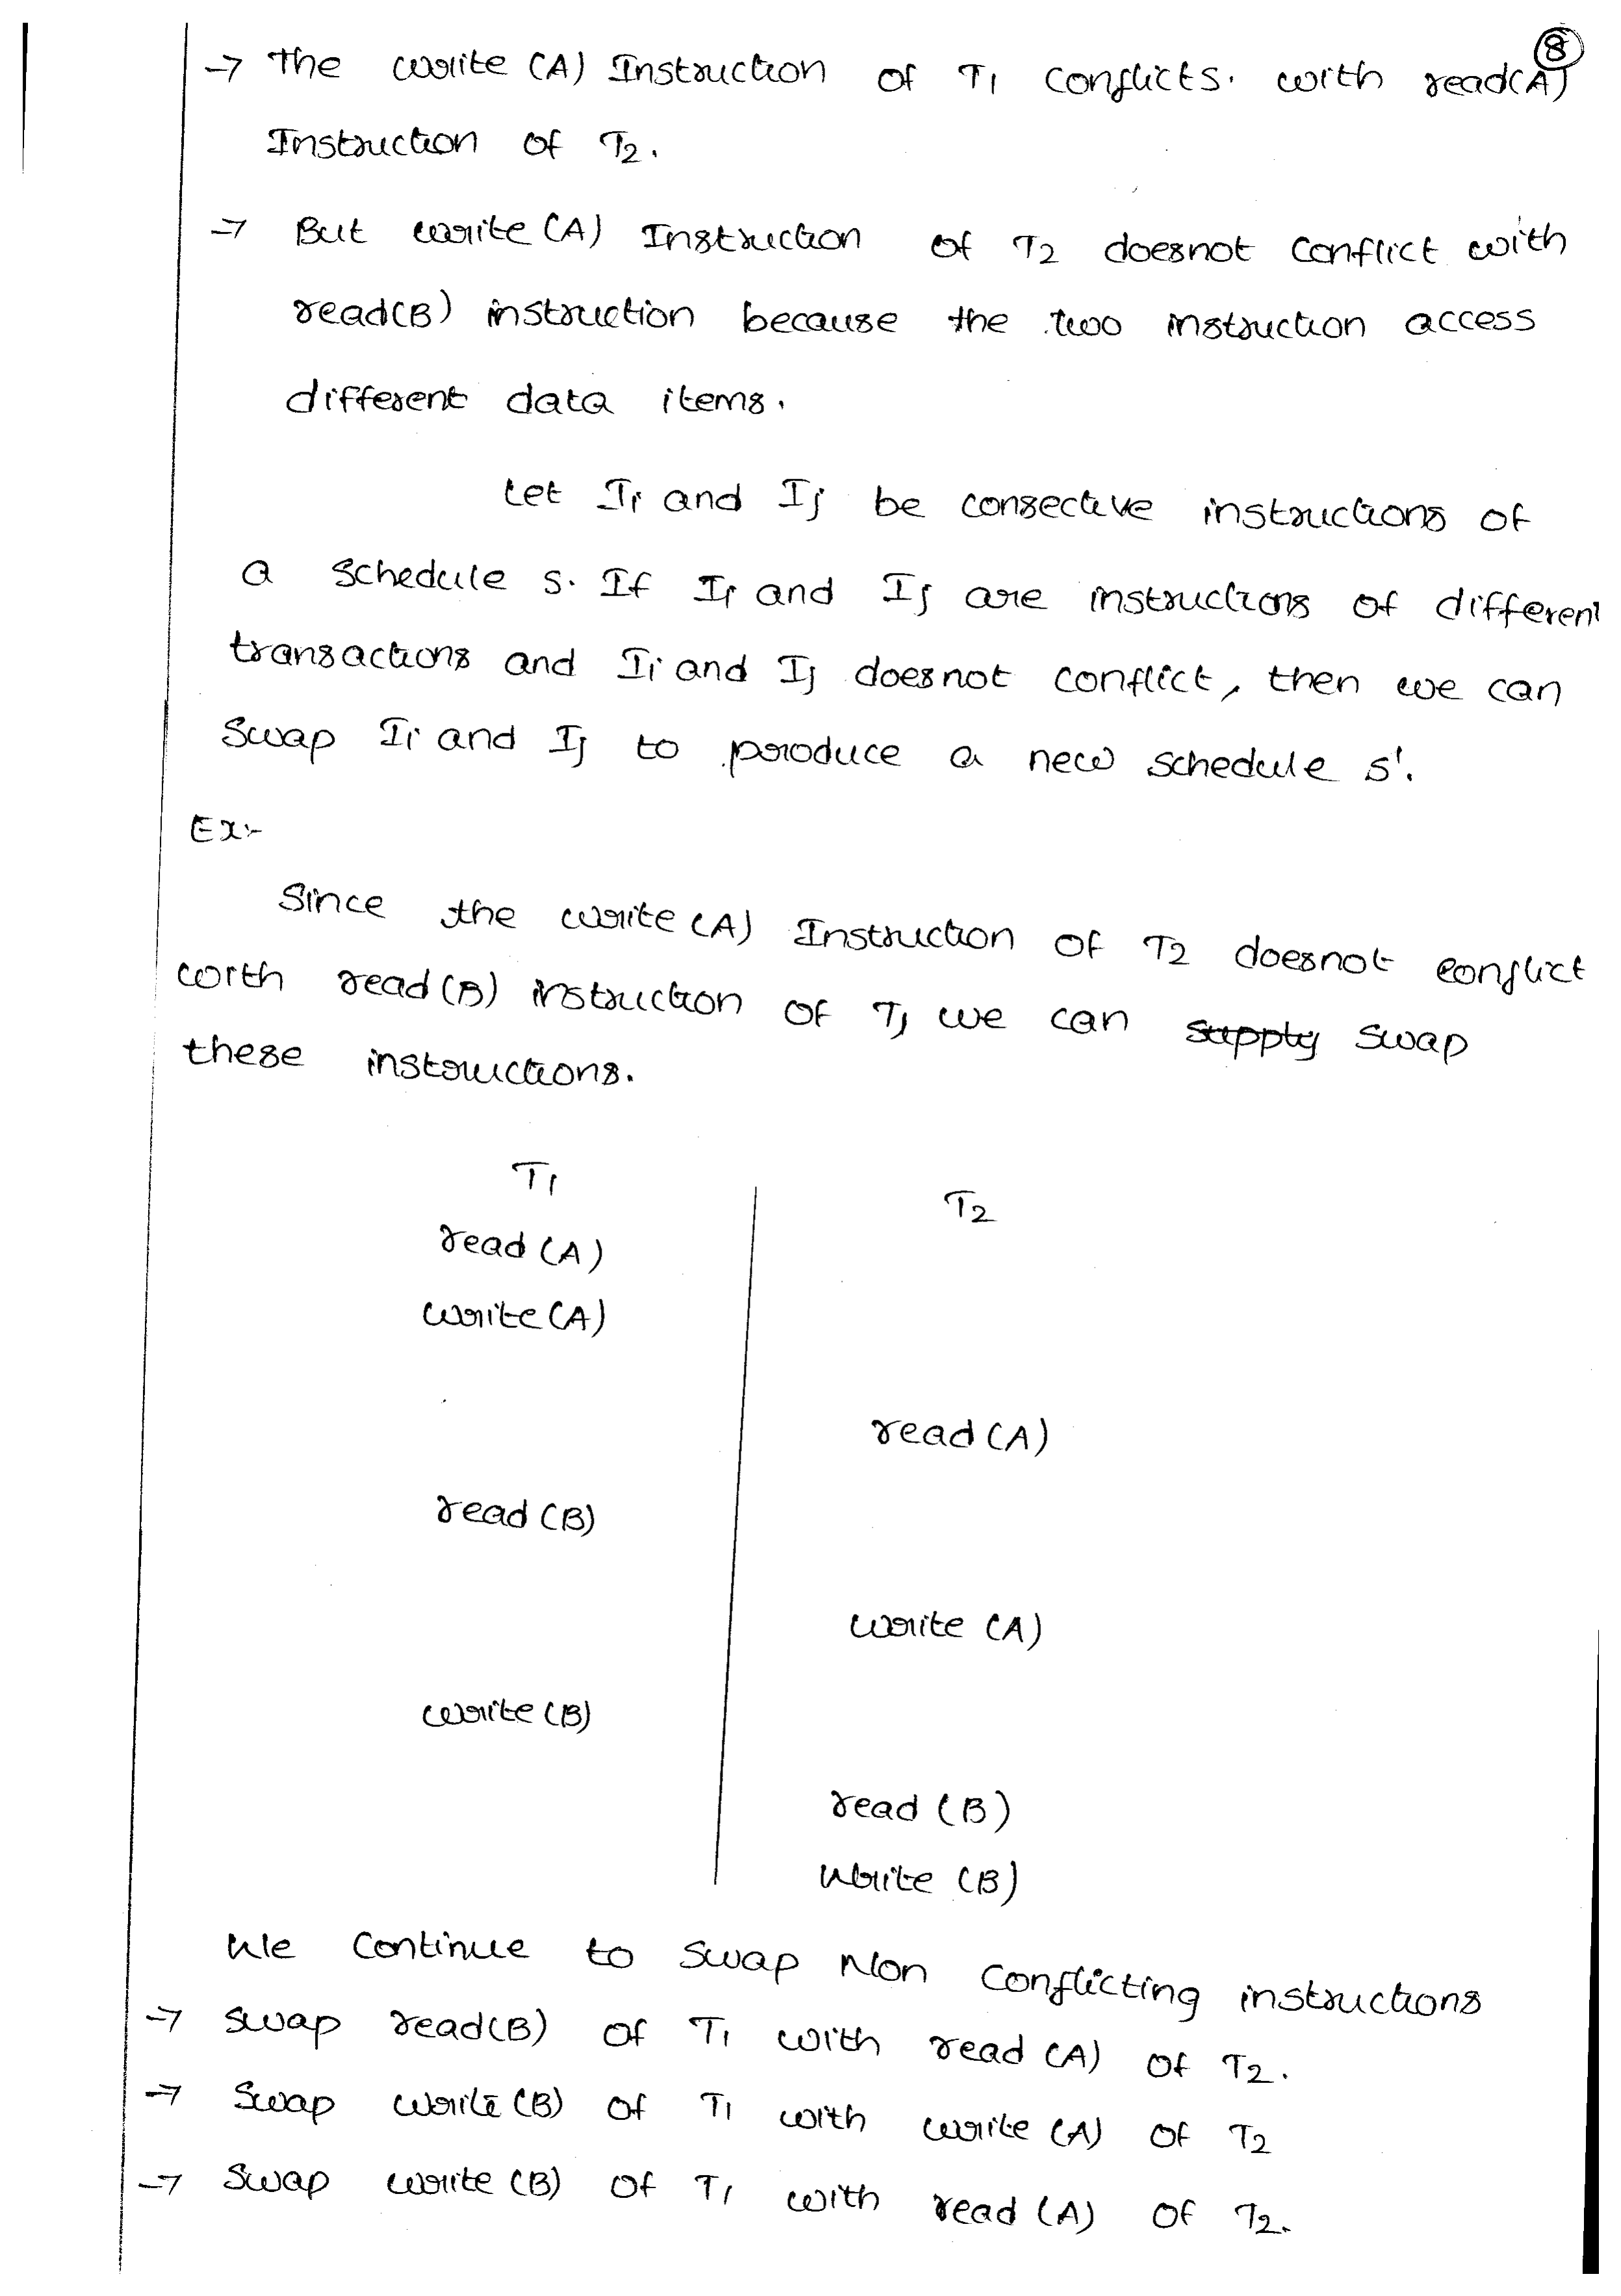 8
→ The write (A) Instruction of T1 conflicts. with read(A)
Instruction of T2.
→ But write (A) Instruction of T2 doesnot conflict with
read(B) instruction because the two instruction access
different data items.
Let Ii and Ij be consective instructions of
a schedule s. If Ii and Ij are instructions of different
transactions and Ii and Ij doesnot conflict, then we can
swap Ii and Ij to produce a new schedule s'.
Ex:-
Since the write (A) Instruction of T2 doesnot conflict
with read (B) instruction of T1 we can supply swap
these instructions.
T1
T2
read (A)
write (A)
read (A)
read (B)
write (A)
write (B)
read (B)
write (B)
We continue to swap Non conflicting instructions
→ swap read(B) of T1 with read (A) of T2.
→ Swap write (B) of T1 with write (A) of T2
→ Swap write (B) of T1 with read (A) of T2.